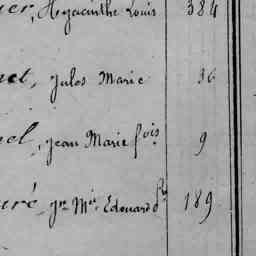 ier, Hyacinthe Louis 384
et, Jules Marie 36
el, Jean Marie fois 9
uré, Jn Mie Edouard 189